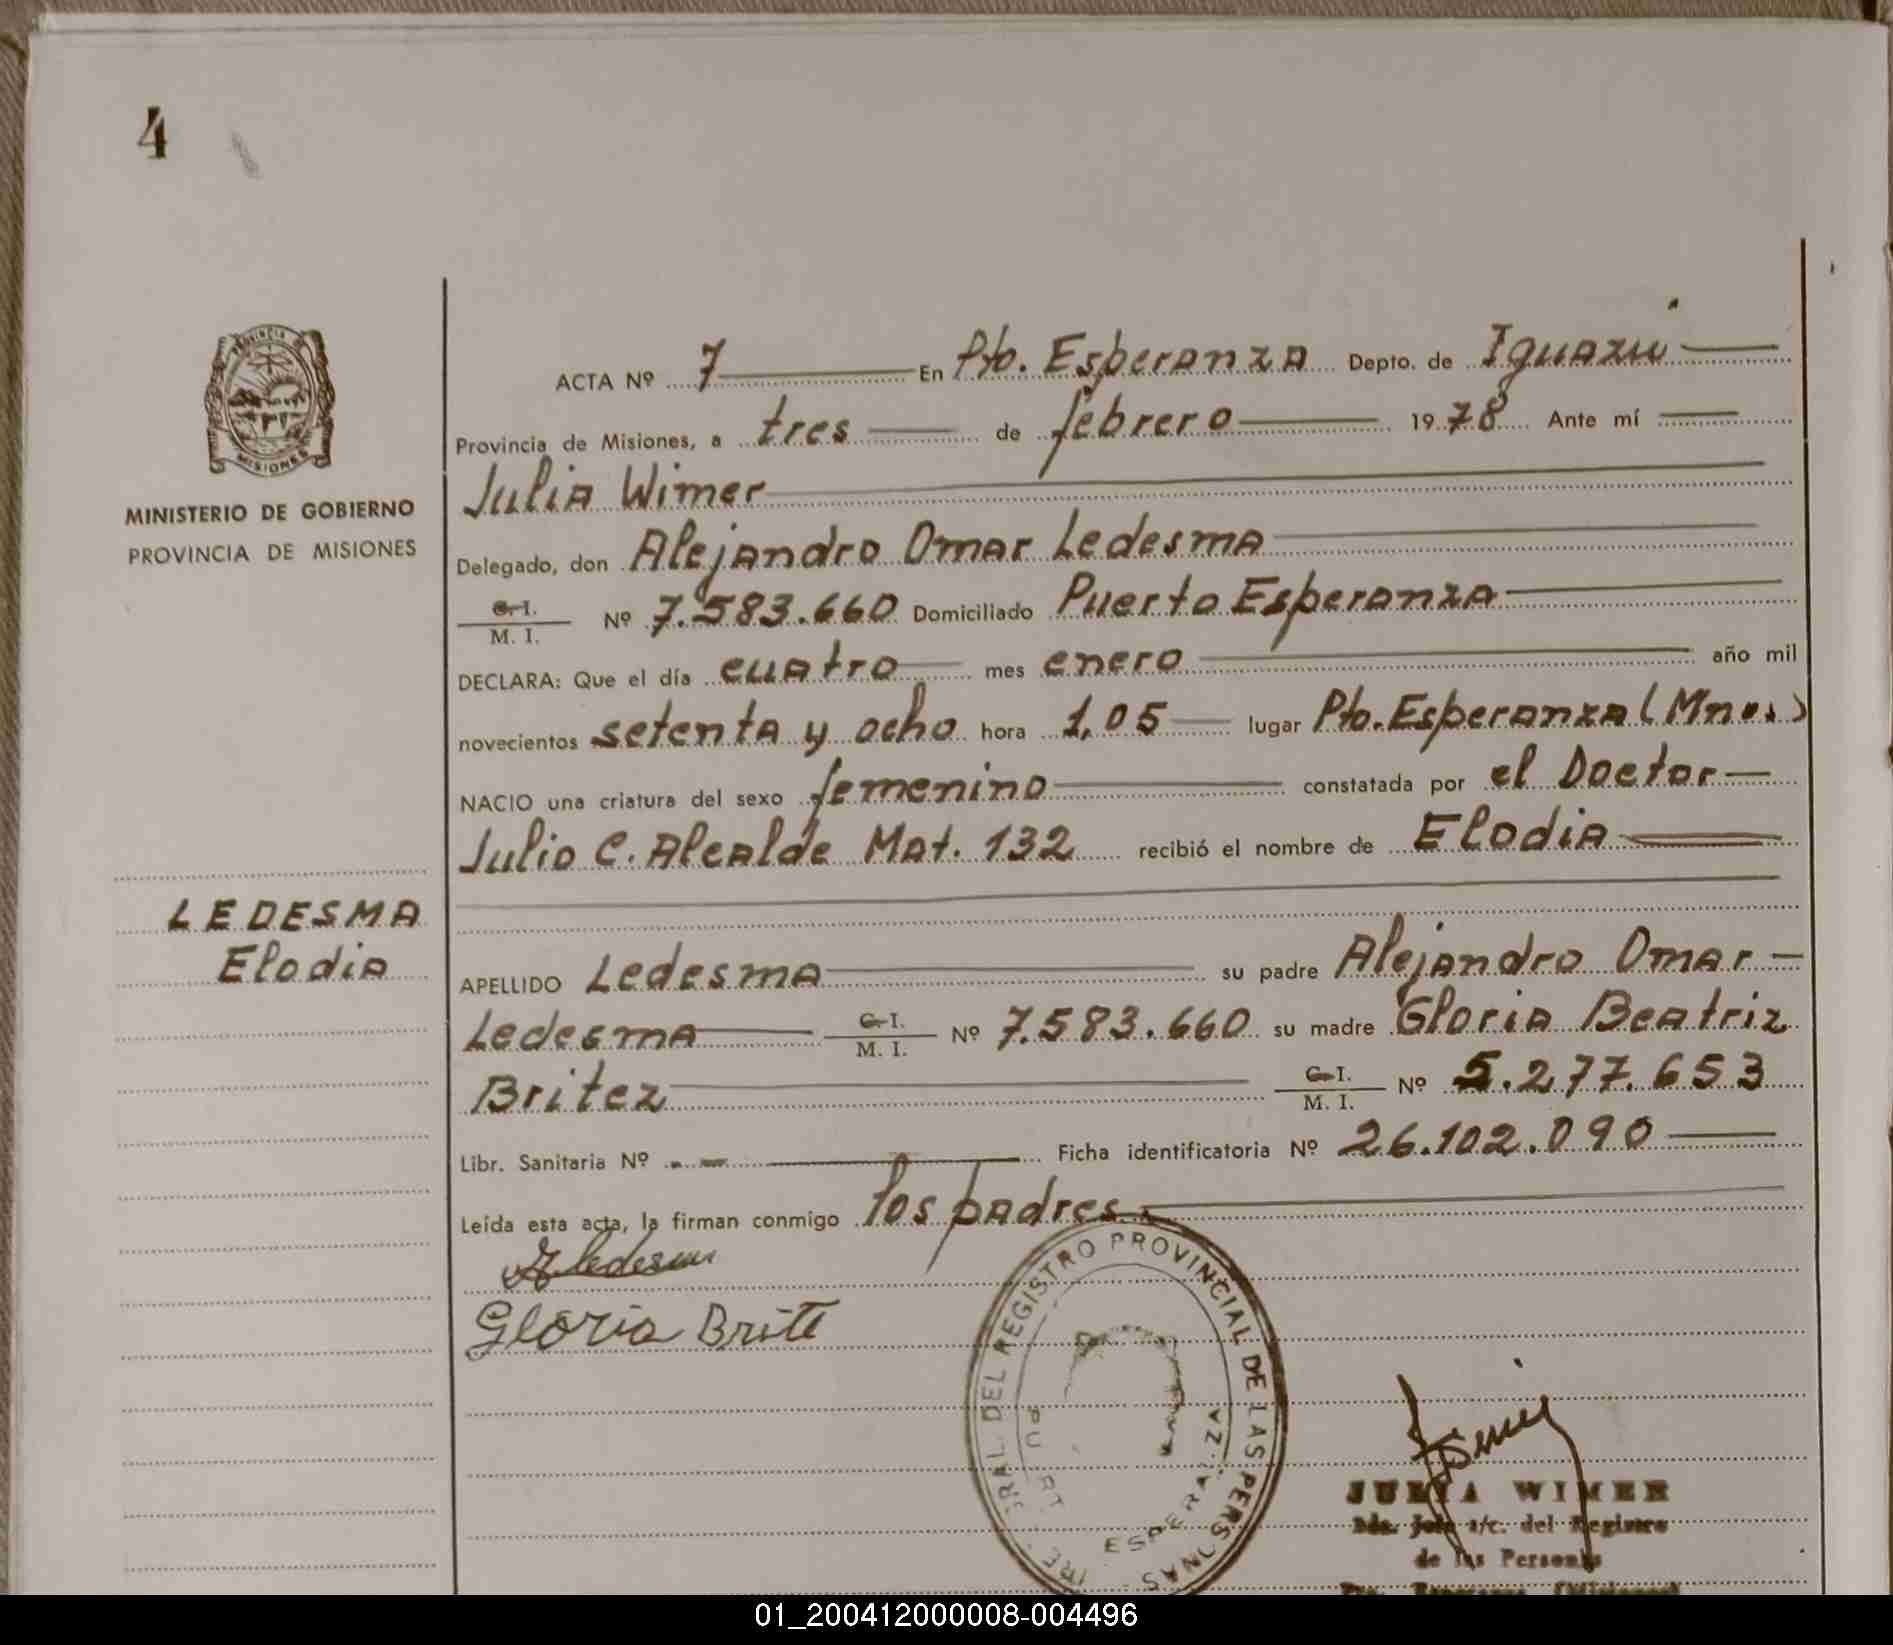 4
PROVINCIA DE
MISIONES
MINISTERIO DE GOBIERNO
PROVINCIA DE MISIONES
LEDESMA
Elodia
ACTA Nº 7 En Pto. Esperanza Depto. de Iguazú
Provincia de Misiones, a tres de febrero 1978 Ante mí
Julia Wimer
Delegado, don Alejandro Omar Ledesma
C. I. / M. I. Nº 7.583.660 Domiciliado Puerto Esperanza
DECLARA: Que el día cuatro mes enero año mil
novecientos setenta y ocho hora 1,05 lugar Pto. Esperanza (Mnes.)
NACIO una criatura del sexo femenino constatada por el Doctor
Julio C. Alcalde Mat. 132 recibió el nombre de Elodia
APELLIDO Ledesma su padre Alejandro Omar
Ledesma C. I. / M. I. Nº 7.583.660 su madre Gloria Beatriz
Britez C. I. / M. I. Nº 5.277.653
Libr. Sanitaria Nº - - Ficha identificatoria Nº 26.102.090
Leída esta acta, la firman conmigo los padres.
Ledesma
Gloria Brite
DEL REGISTRO PROVINCIAL DE LAS PERSONAS
ESPERANZA
JULIA WIMER
a/c. del Registro
de las Personas
01_200412000008-004496